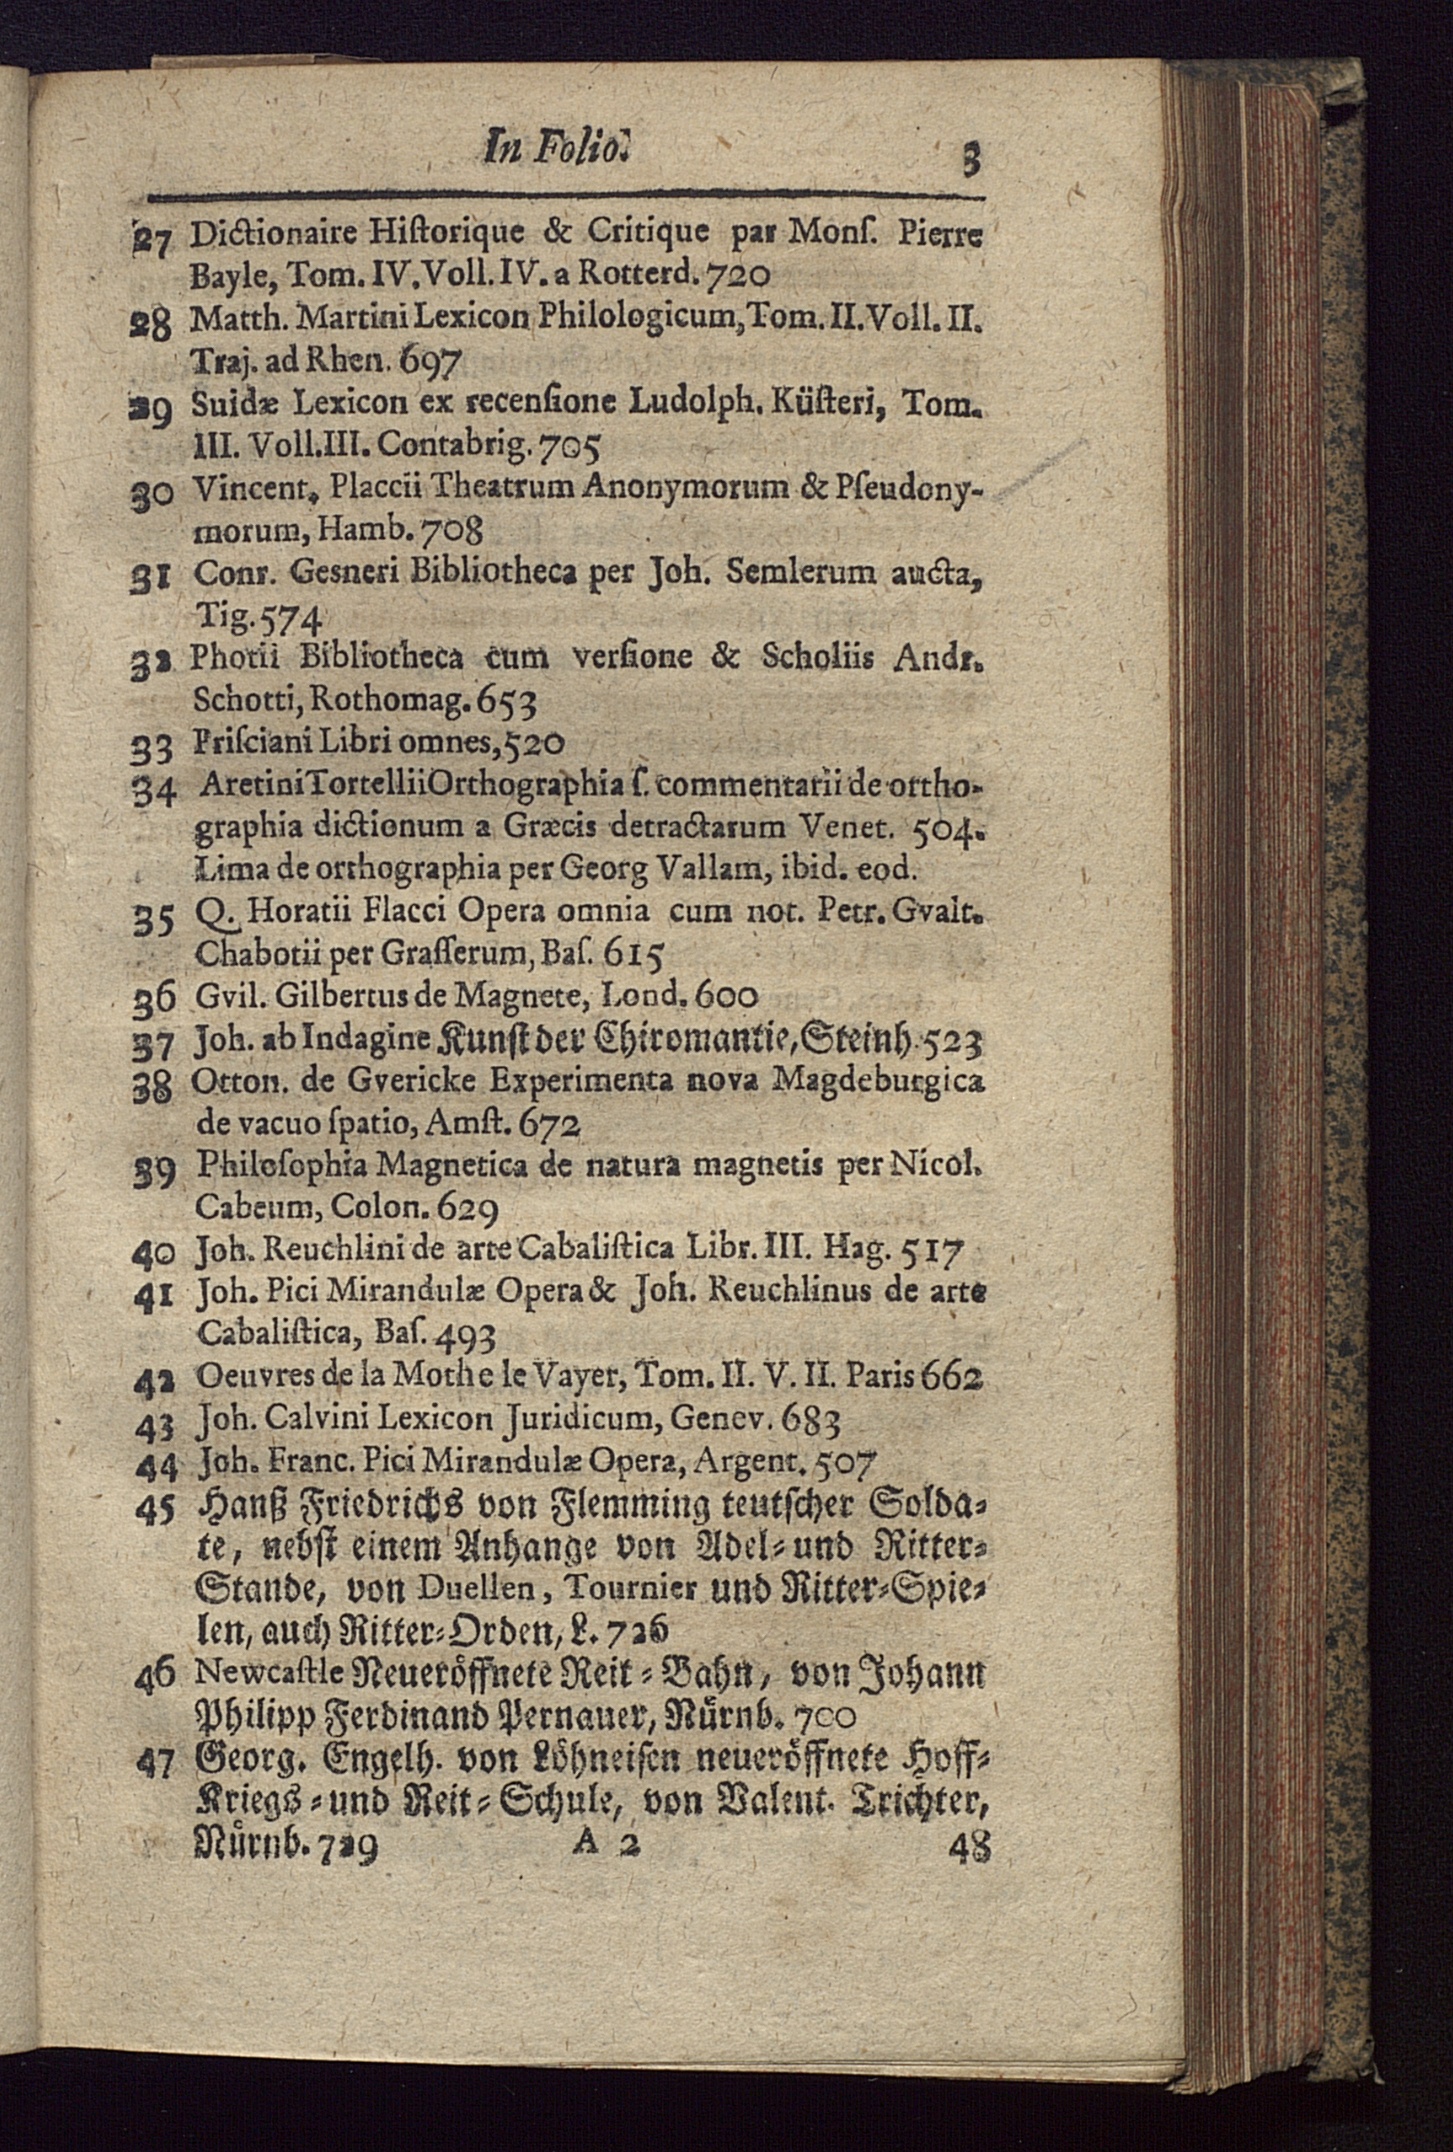 In Folio. 3
27 Dictionaire Hiſtorique & Critique par Monſ. Pierre
Bayle, Tom. IV. Voll. IV. a Rotterd. 720
28 Matth. Martini Lexicon Philologicum, Tom. II. Voll. II.
Traj. ad Rhen. 697
29 Suidæ Lexicon ex recenſione Ludolph. Küſteri, Tom.
III. Voll. III. Contabrig. 705
30 Vincent. Placcii Theatrum Anonymorum & Pſeudony-
morum, Hamb. 708
31 Conr. Gesneri Bibliotheca per Joh. Semlerum aucta,
Tig. 574
32 Photii Bibliotheca cum verſione & Scholiis Andr.
Schotti, Rothomag. 653
33 Priſciani Libri omnes, 520
34 Aretini Tortellii Orthographia ſ. commentarii de ortho-
graphia dictionum a Græcis detractarum Venet. 504.
Lima de orthographia per Georg Vallam, ibid. eod.
35 Q. Horatii Flacci Opera omnia cum not. Petr. Gvalt.
Chabotii per Graſſerum, Baſ. 615
36 Gvil. Gilbertus de Magnete, Lond. 600
37 Joh. ab Indagine Kunſt der Chiromantie, Steinh. 523
38 Otton. de Gvericke Experimenta nova Magdeburgica
de vacuo ſpatio, Amſt. 672
39 Philoſophia Magnetica de natura magnetis per Nicol.
Cabeum, Colon. 629
40 Joh. Reuchlini de arte Cabaliſtica Libr. III. Hag. 517
41 Joh. Pici Mirandulæ Opera & Joh. Reuchlinus de arte
Cabaliſtica, Baſ. 493
42 Oeuvres de la Mothe le Vayer, Tom. II. V. II. Paris 662
43 Joh. Calvini Lexicon Juridicum, Genev. 683
44 Joh. Franc. Pici Mirandulæ Opera, Argent. 507
45 Hanß Friedrichs von Flemming teutſcher Solda-
te, nebſt einem Anhange von Adel- und Ritter-
Stande, von Duellen, Tournier und Ritter-Spie-
len, auch Ritter-Orden, L. 726
46 Newcaſtle Neueröffnete Reit-Bahn, von Johann
Philipp Ferdinand Pernauer, Nürnb. 700
47 Georg. Engelh. von Löhneiſen neueröffnete Hoff-
Kriegs- und Reit-Schule, von Valent. Trichter,
Nürnb. 729 A 2 48